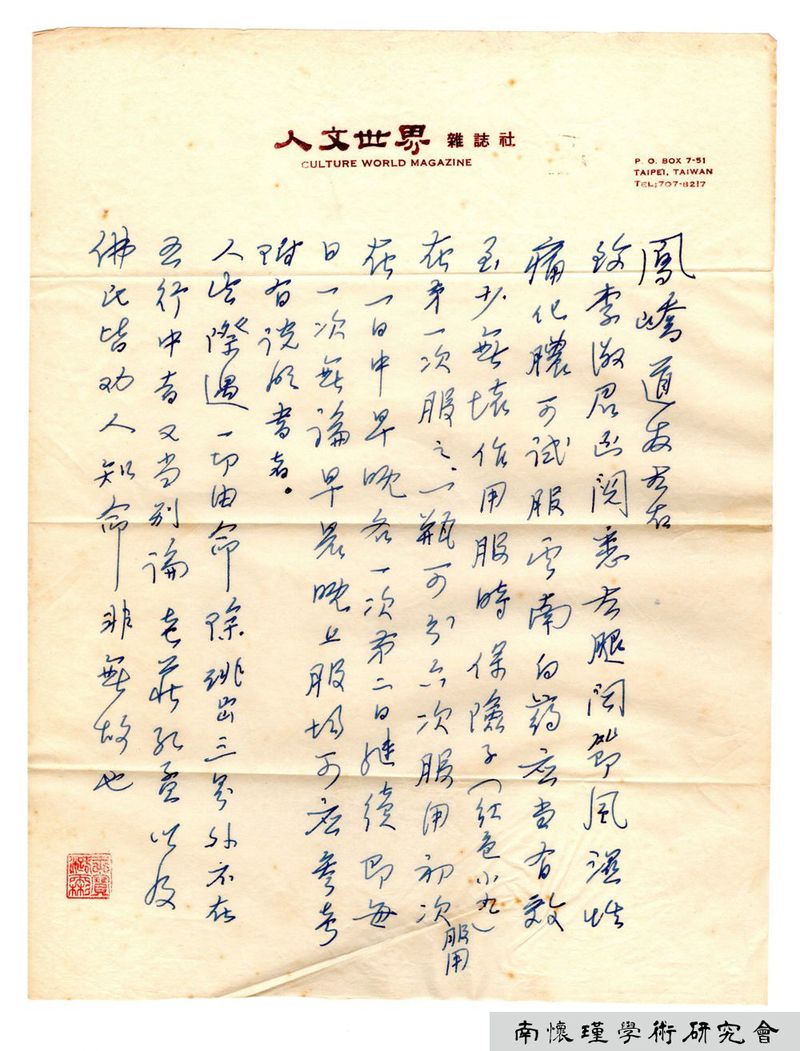 人文世界 雜誌社
CULTURE WORLD MAGAZINE
P. O. BOX 7-51
TAIPEI, TAIWAN
TEL:707-8217
鳳嶠道友左右
致李淑君函閱悉右腿関節風濕性
痛化膿可試服雲南白藥应当有效
至少無壞作用服時保險子(紅色小丸)
在第一次服之一瓶可分六次服用初次服用
在一日中早晚各一次第二日継續即每
日一次無論早晨晚上服均可应參考
附有说明書者。
人生際遇一切由命除跳出三界外不在
五行中者又当别論老莊孔孟以及
佛氏皆劝人知命非無故也
南懷瑾學術研究會